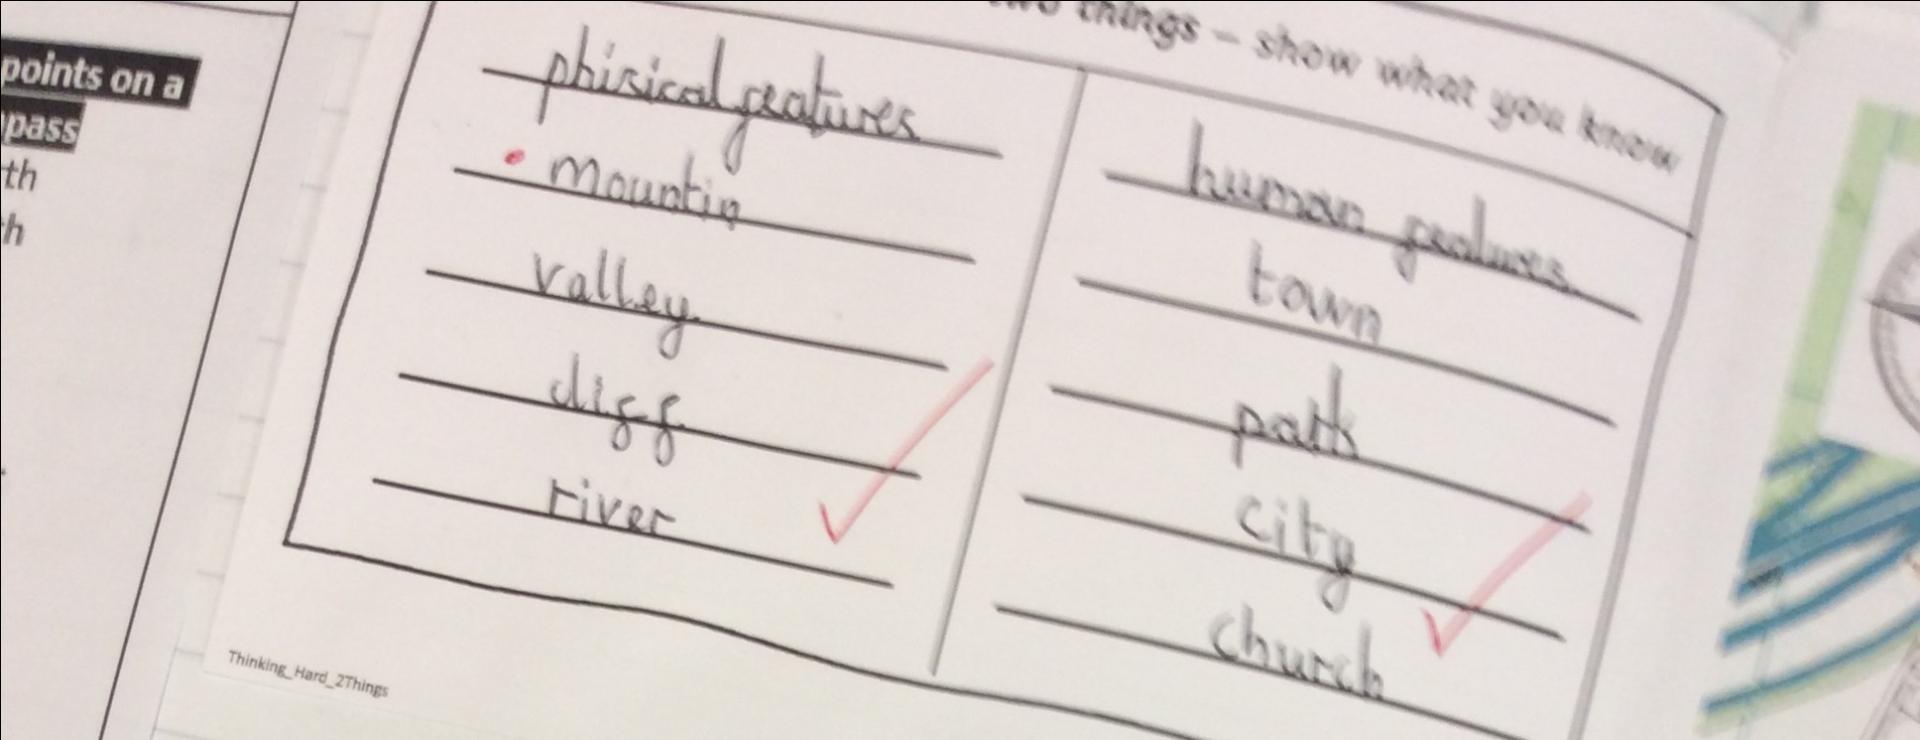 points on a
pass
th
h
two things – show what you know
phisical features
mountin
valley
cliff
river
human features
town
path
city
church
Thinking_Hard_2Things